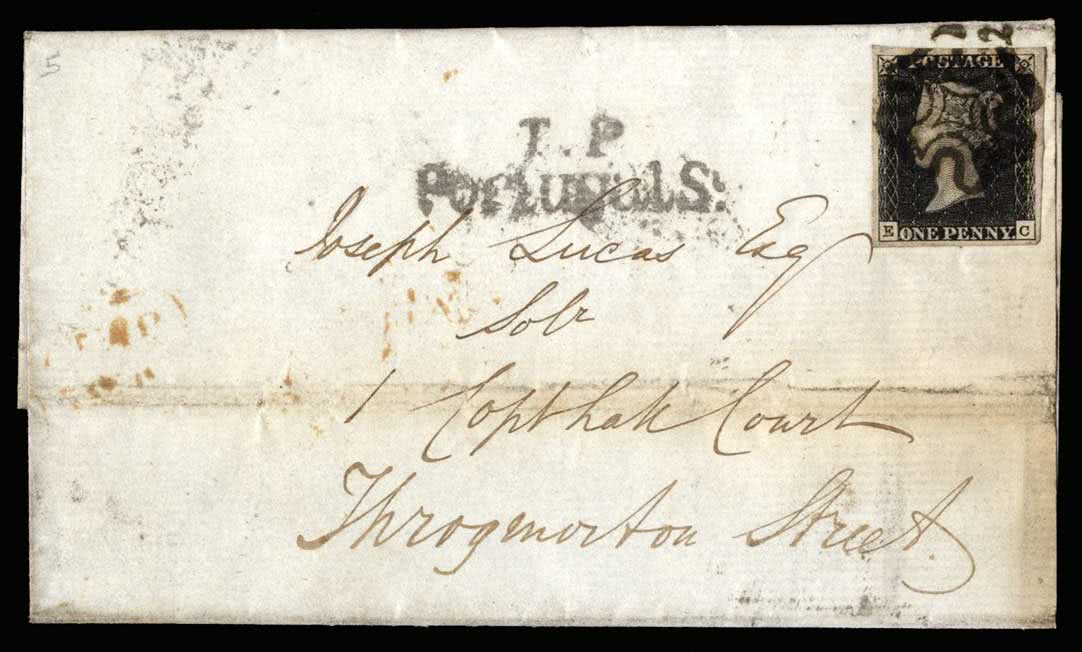 5
2
POSTAGE
T.P
Portugal S:
Joseph Lucas Esq
Solr
1 Copthall Court
Throgmorton Street.
E ONE PENNY C